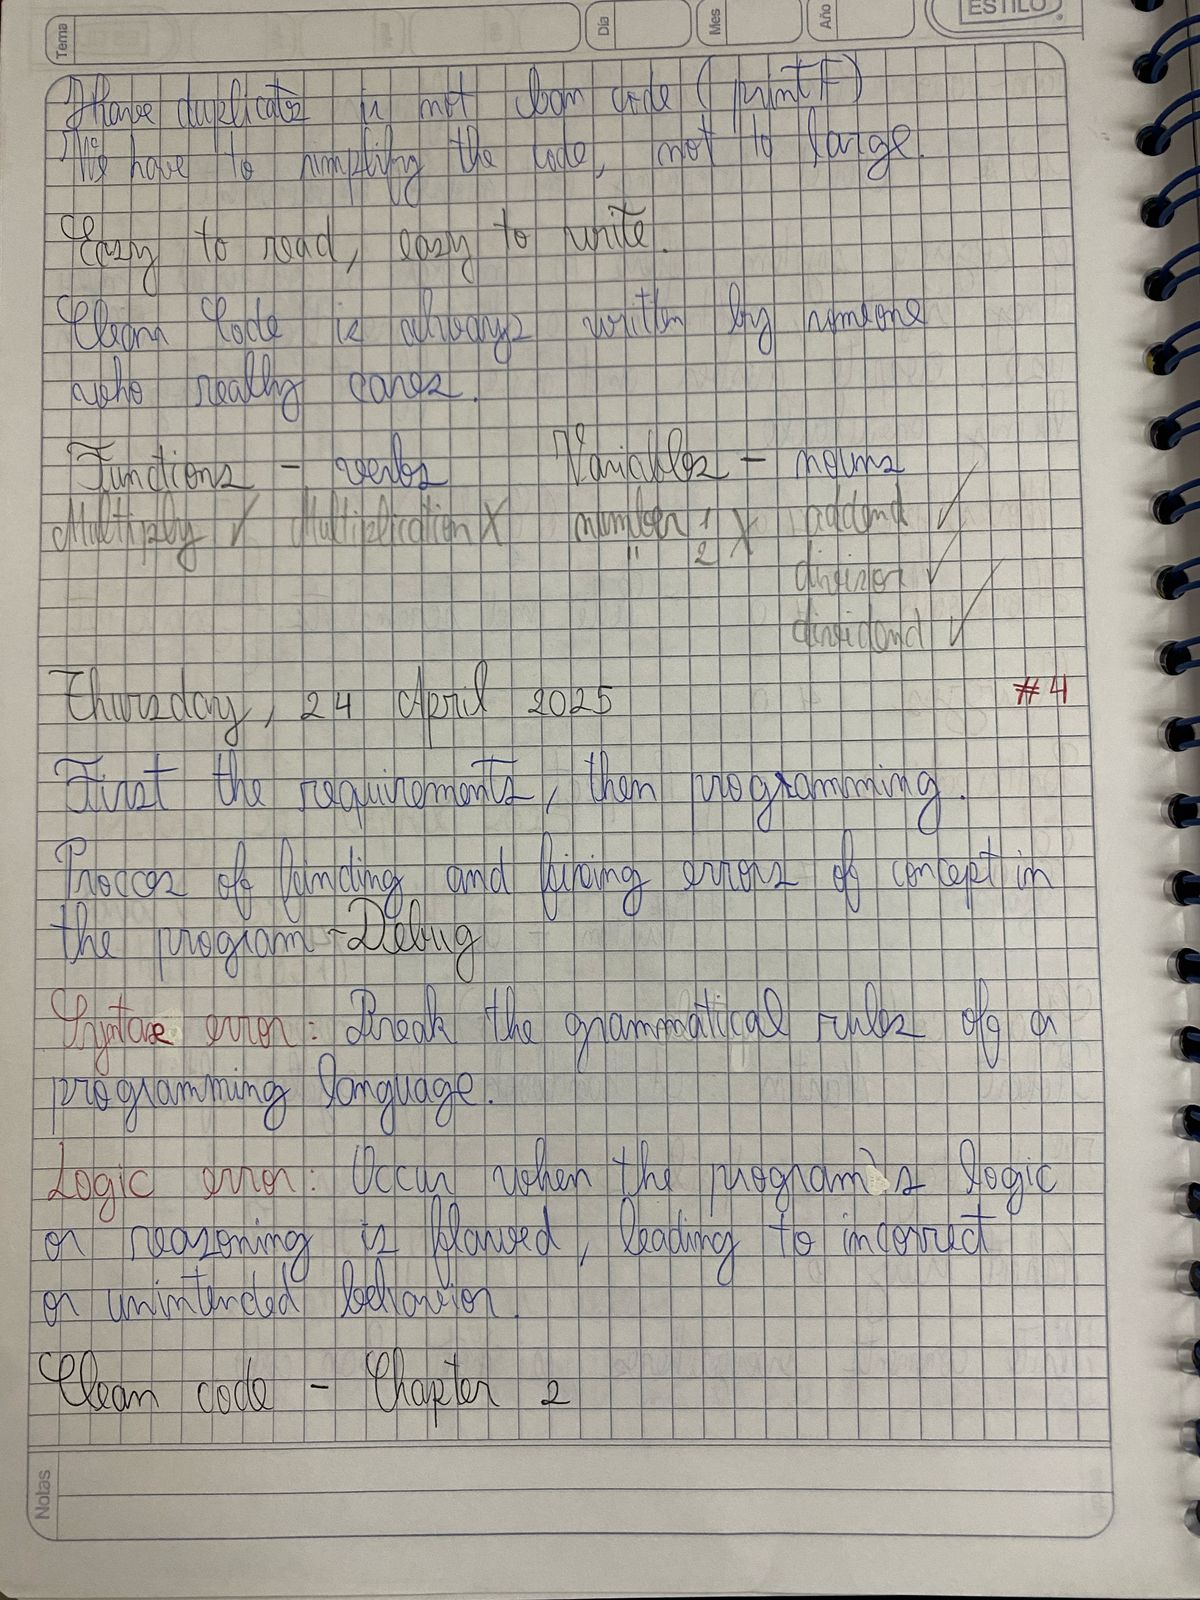 Tema Día Mes Año ESTILO
Have duplicates is not clean code (printf)
We have to simplify the code, not to large.
Easy to read, easy to write.
Clean Code is always written by someone
who really cares.
Functions - verbs Variables - nouns
Multiply ✓ Multiplication X number 1 X addend ✓
" 2 divisor ✓
dividend ✓
Thursday, 24 April 2025 #4
First the requirements, then programming.
Procces of finding and fixing errors of concept in
the program - Debug
Syntax error: Break the grammatical rules of a
programming language.
Logic error: Occur when the program's logic
or reasoning is flawed, leading to incorrect
or unintended behavior.
Clean code - Chapter 2
Notas